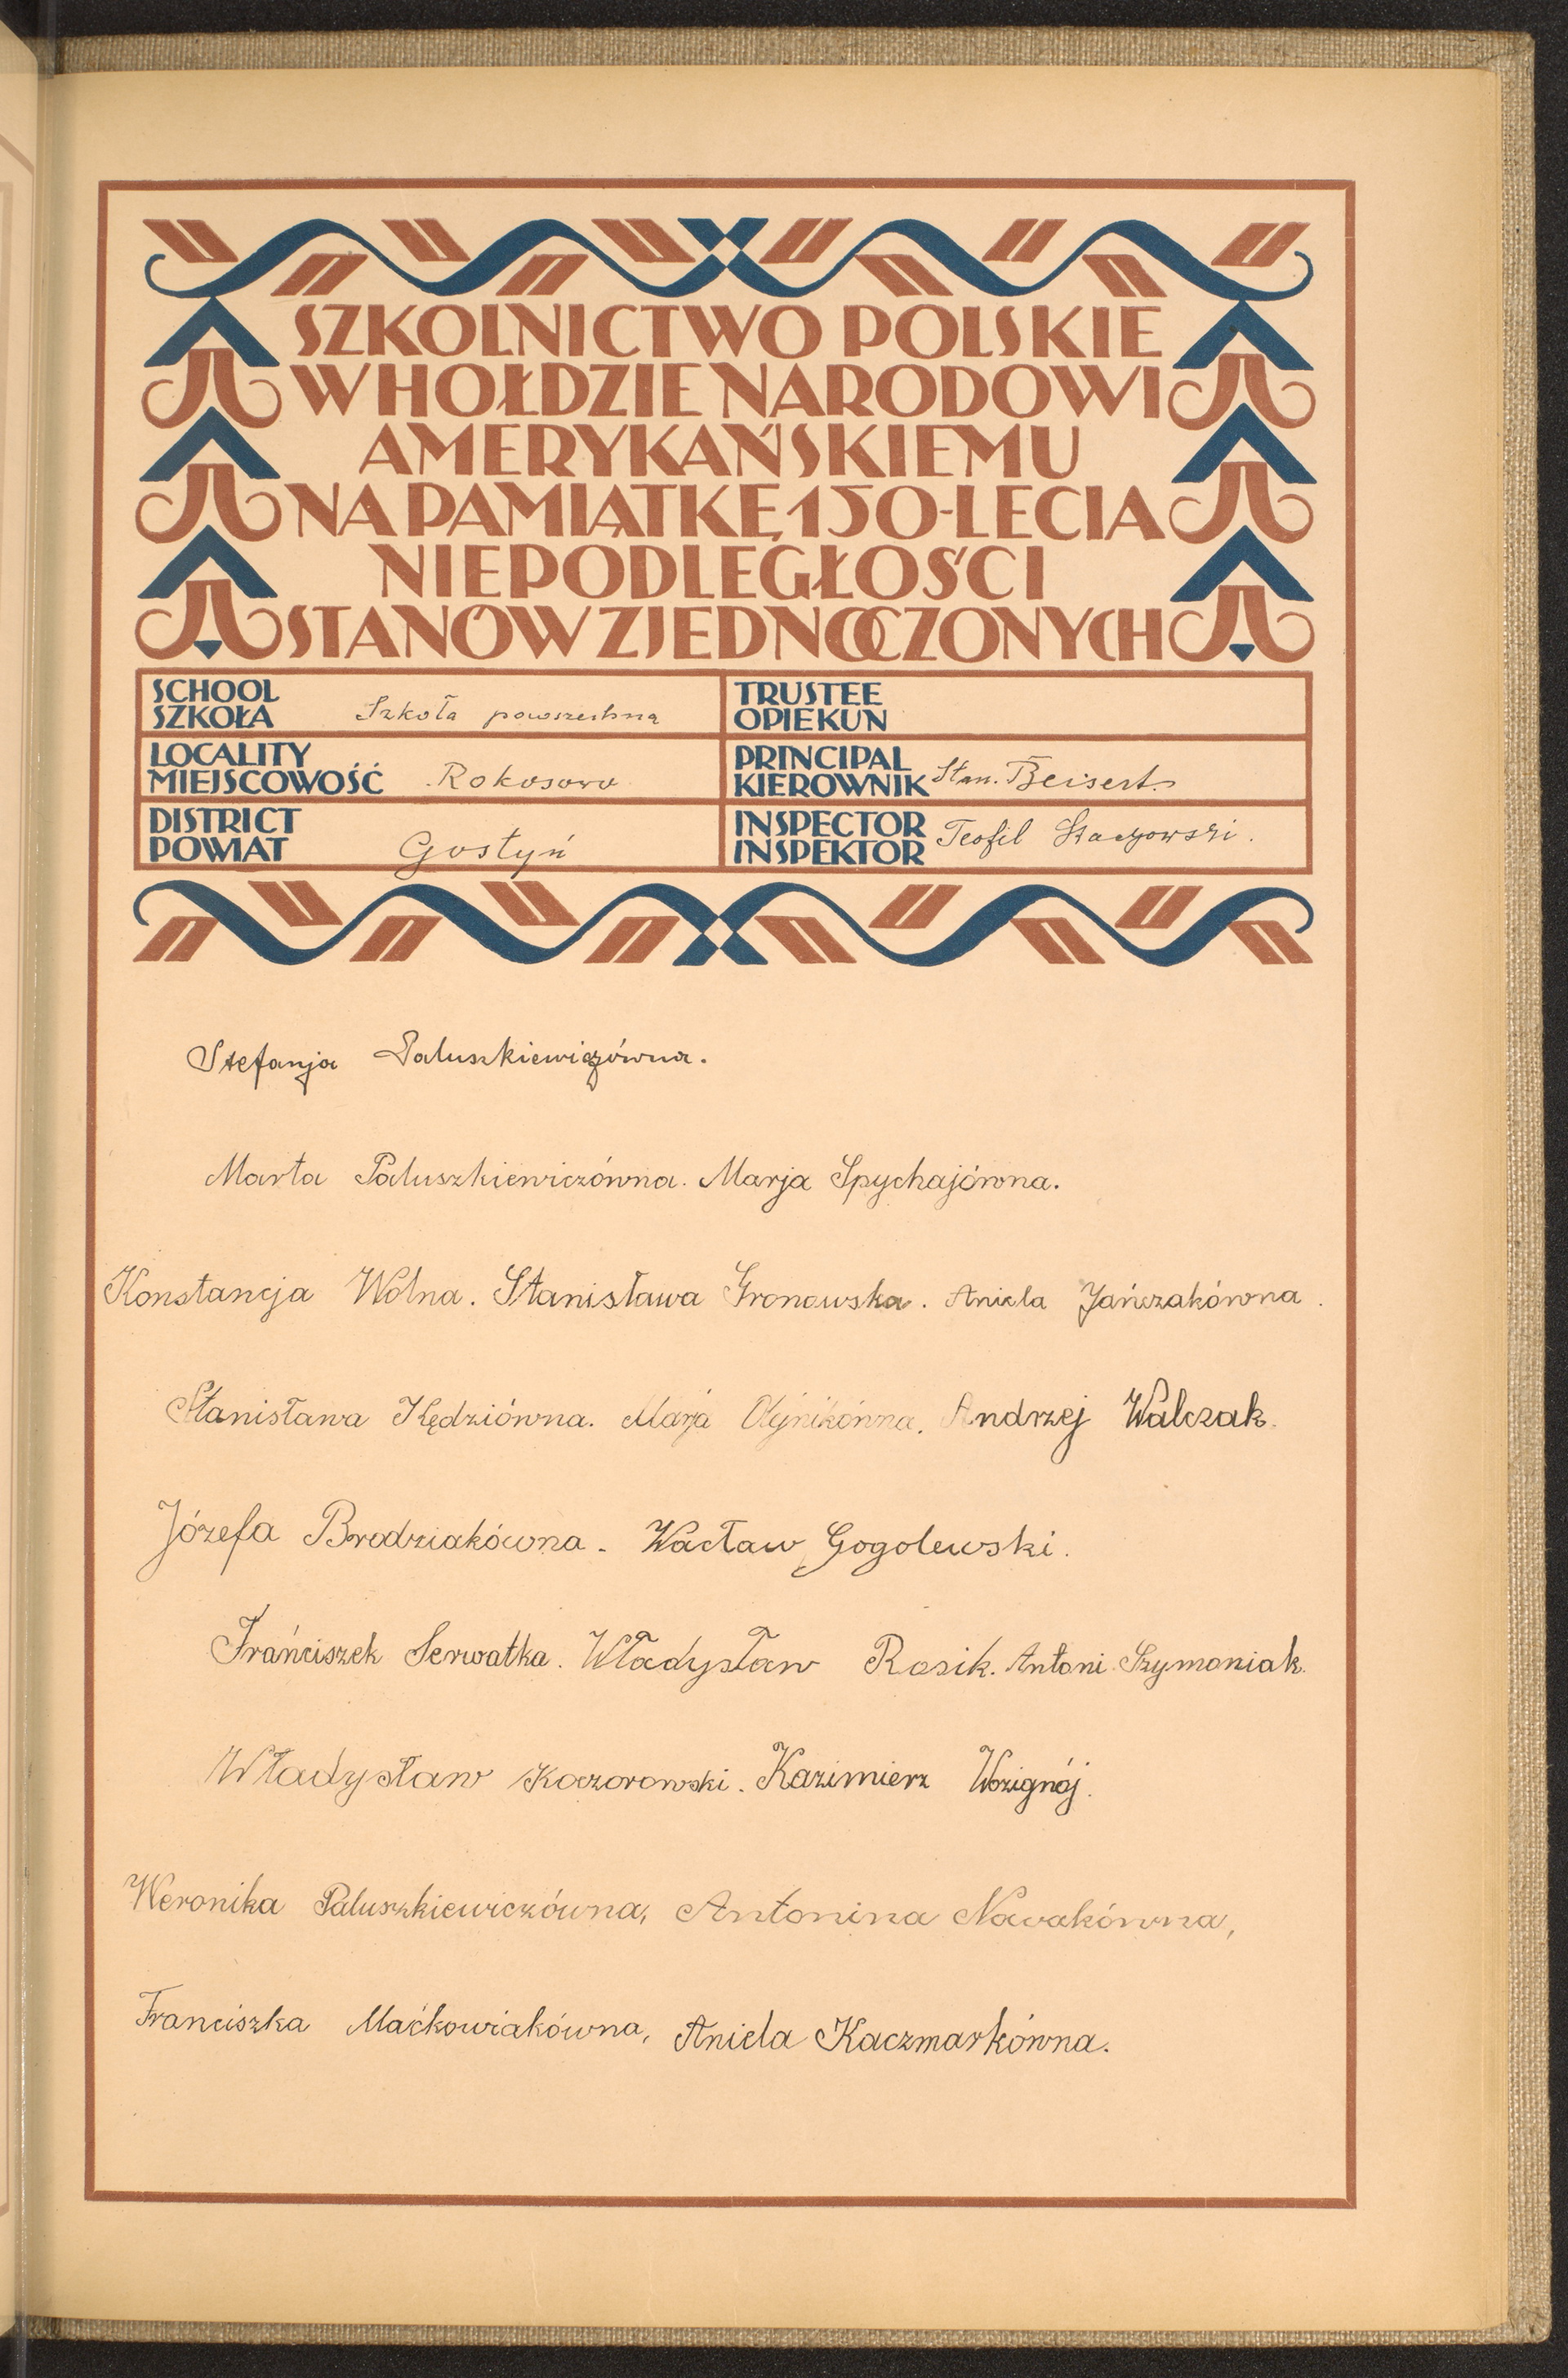 SZKOLNICTWO POLSKIE
W HOŁDZIE NARODOWI
AMERYKAŃSKIEMU
NA PAMIĄTKĘ 150-LECIA
NIEPODLEGŁOŚCI
STANÓW ZJEDNOCZONYCH
SCHOOL
SZKOŁA Szkoła powszechna
TRUSTEE
OPIEKUN
LOCALITY
MIEJSCOWOŚĆ Rokosowo
PRINCIPAL
KIEROWNIK Stan. Beisert
DISTRICT
POWIAT Gostyń
INSPECTOR
INSPEKTOR Teofil
Stefanja Paluszkiewiczówna.
Marta Paluszkiewiczówna. Marja Spychajówna.
Konstancja Wolna. Stanisława Gronowska. Aniela Jańczakówna.
Stanisława Kędziówna. Marja Olejnikówna. Andrzej Walczak.
Józefa Brodziakówna. Wacław Gogolewski.
Frańciszek Serwatka. Władysław Rosik. Antoni Szymoniak.
Władysław Koczorowski. Kazimierz
Weronika Paluszkiewiczówna, Antonina Nowakówna,
Franciszka Maćkowiakówna, Aniela Kaczmarkówna.